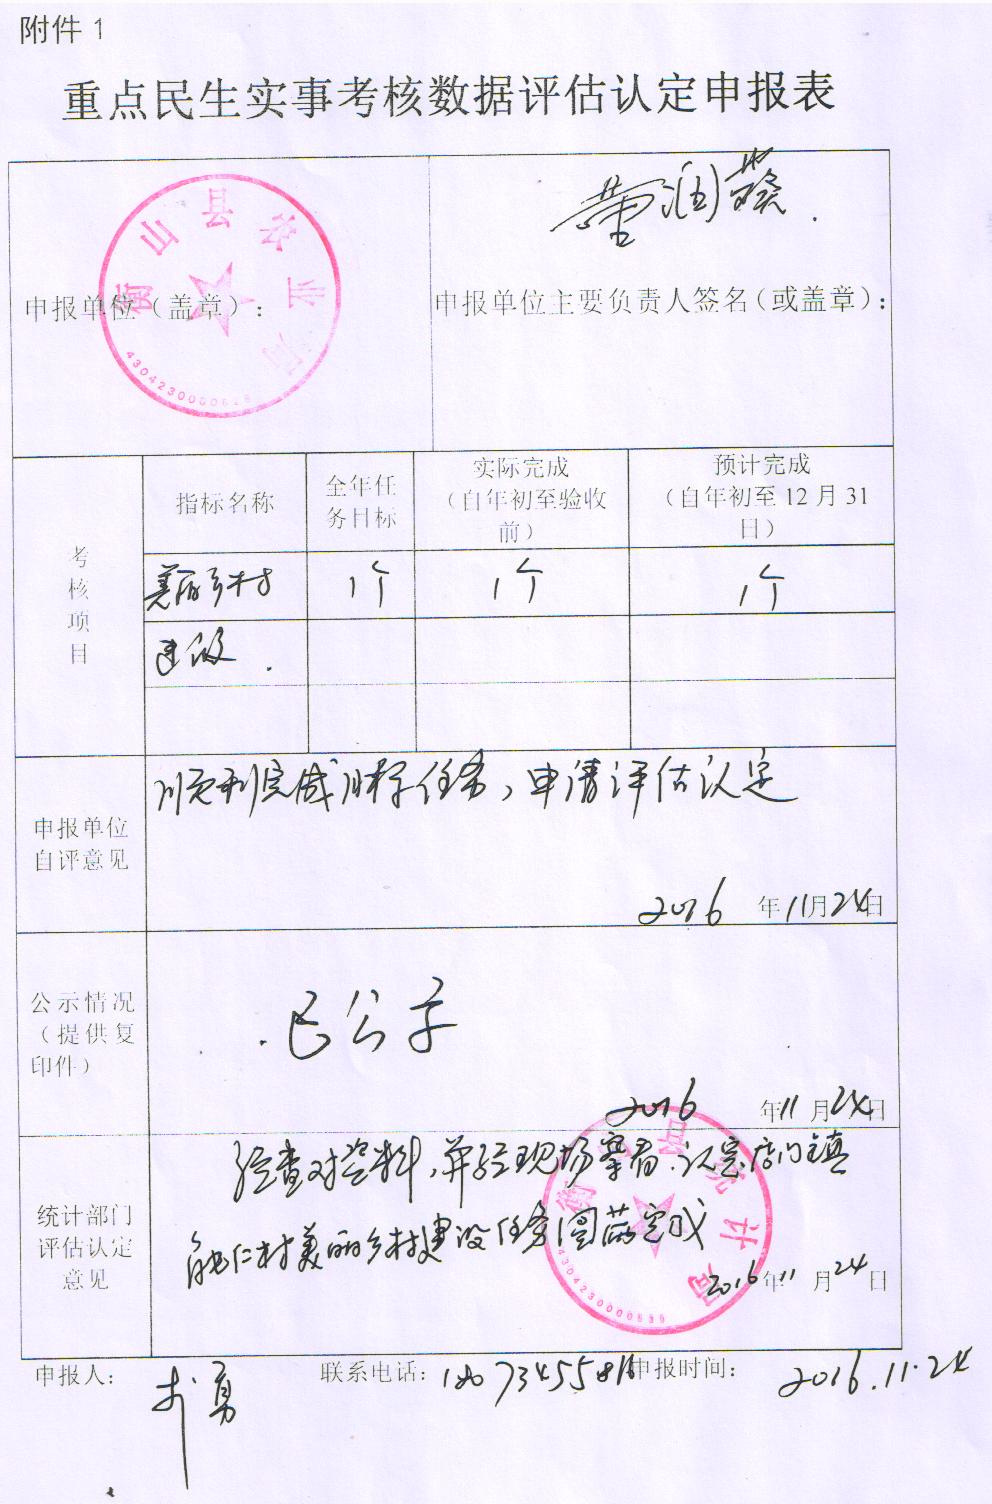 附件 1
重点民生实事考核数据评估认定申报表
衡山县农业局
4304230000
申报单位（盖章）：
申报单位主要负责人签名（或盖章）：
考核项目
指标名称
全年任
务目标
实际完成
（自年初至验收
前）
预计完成
（自年初至 12 月 31
日）
美丽乡村 1个 1个 1个
建设.
申报单位
自评意见
顺利完成目标任务，申请评估认定
2016 年 11 月 24 日
公示情况
（提供复
印件）
已公示
2016 年 11 月 24 日
统计部门
评估认定
意见
经查对资料，并经现场察看，认定店门镇
能仁村美丽乡村建设任务圆满完成
2016 年 11 月 24 日
衡山县统计局
4304230000
申报人： 联系电话： 申报时间： 2016.11.24